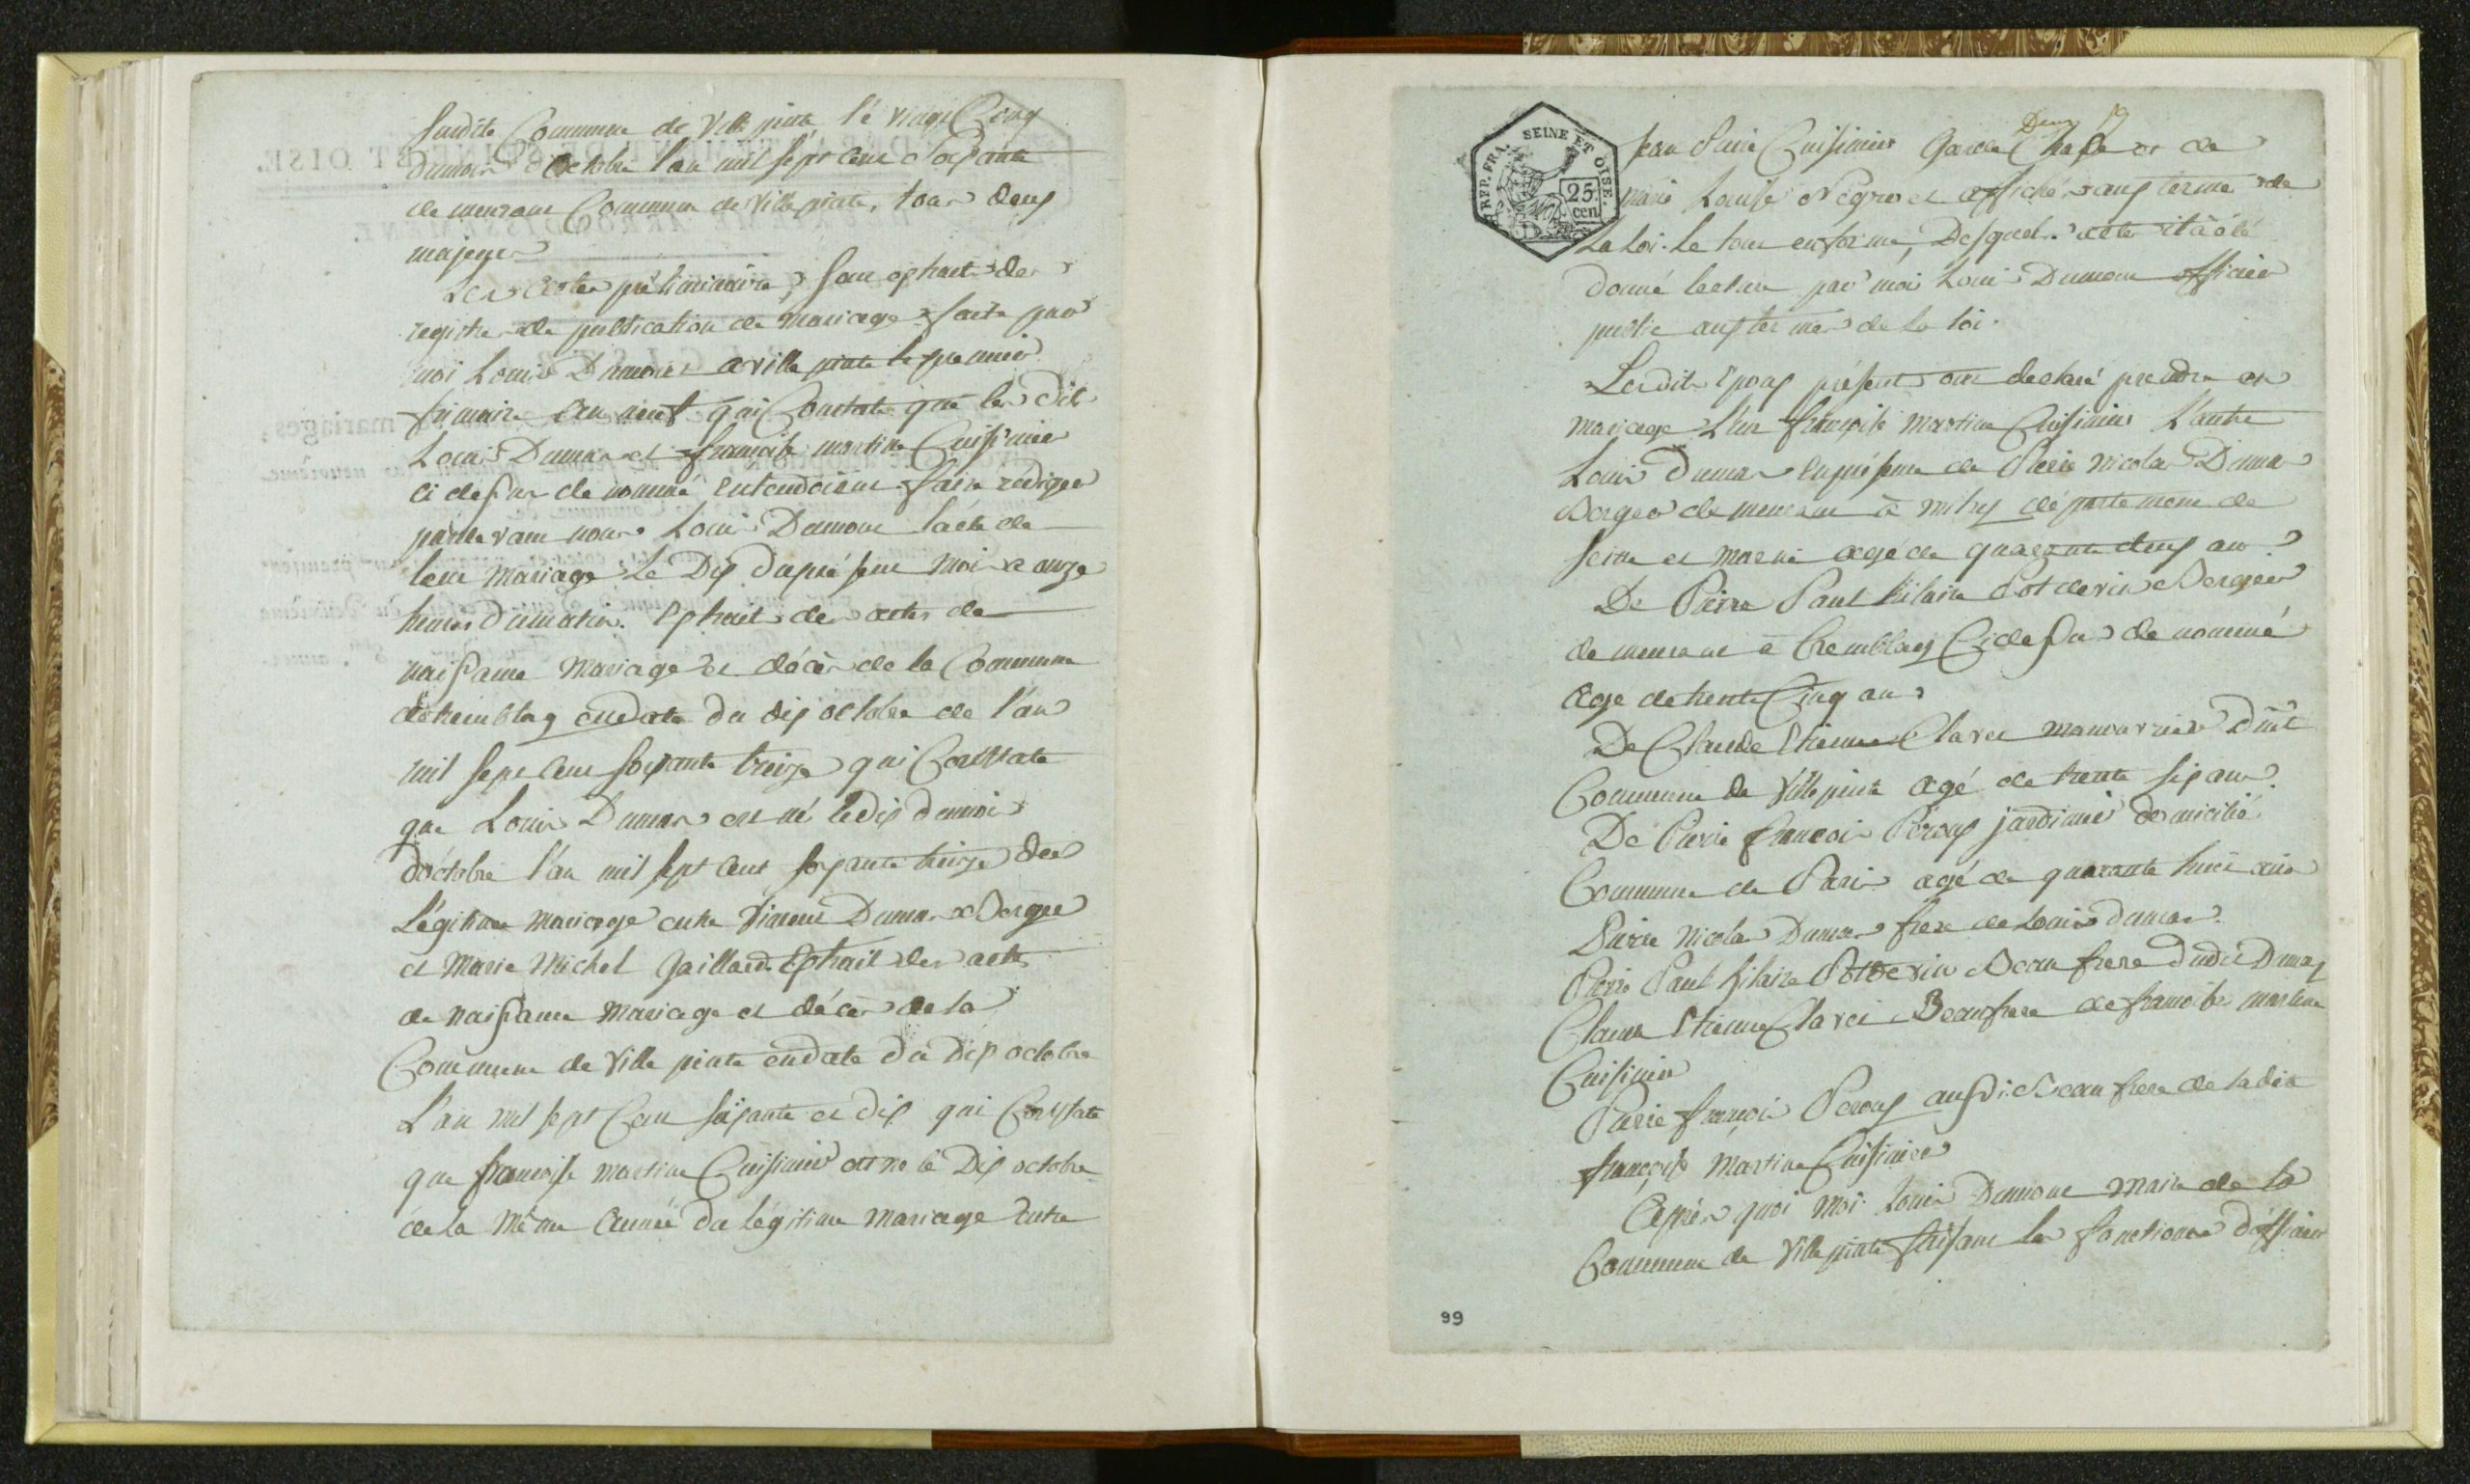 Susdite Commune de Ville pinte lé vingt Cinq
dumois d'octobre l'an mil sept cent soixante
demeurant Commune de Ville pinte, tous deux
majeurs
Les actes préliminaire, sont extrait des
registre de publication de mariage faite par
moi Louis Dumont a ville pinte le premier
frimaire an neuf qui Constate que les dit
Louis Dumas et françoise martine Cuisinier
ci dessus de nommé entendoient faire rédiger
pardevant nous Louis Dumont l'acte de
leur mariage le Dix du présent mois a onze
heures du matin. Extrait des actes de
naissance mariage et décès de la Commune
detremblay endate du dix octobre de l'an
mil sept cent soixante treize qui Constate
que Louis Dumas est né ledix du mois
d'octobre l'an mil sept cent soixante treize du
Légitime mariage entre Vincent Dumas Berger
et Marie Michel Gaillard. Extrait des actes
de naissance mariage et décès de la
Commune de Ville pinte endate du Dix octobre
L'an mil sept Cent soixante et dix qui Constate
que françoise martine Cuisinier est né le Dix octobre
de la même année du légitime mariage entre
RÉP. FRA. SEINE ET OISE.
25 cen
Jean Pierre Cuisinier Garde Chasse et de
marie Louise Négro et affiché aux terme de
La Loi. Le tout en forme, Desquels acte il a été
donné lecture par moi Louis Dumont officier
public aux termes de la loi.
Lesdits Epoux présents ont declaré prendre en
mariage L'un françoise martine Cuisinier L'autre
Louis Dumas en présence de Pierre nicolas Dumas
Berger demeurant à mitry département de
Seine et marne agé de quarante deux ans
De Pierre Paul hilaire Potdevin Berger
demeurant à tremblay Cidessus de nommé
age de trente Cinq ans
De Claude Etienne Clavet manouvrier
Commune de Villepinte agé de trente six ans
De Pierre françois Peroux jardinier domicilié
Commune de Paris agé de quarante huit ans
Pierre nicolas Dumas frere de Louis dumas
Pierre Paul hilaire Potdevin Beau frere dudit Dumas
Claude Etienne Clavet Beaufrere de francoise martine
Cuisinier
Pierre françois Peroux aussi Beau frere de ladite
françoise Martine Cuisinier
Après quoi moi Louis Dumont maire de la
Commune de Villepinte faisant les fonctions d'officier
99